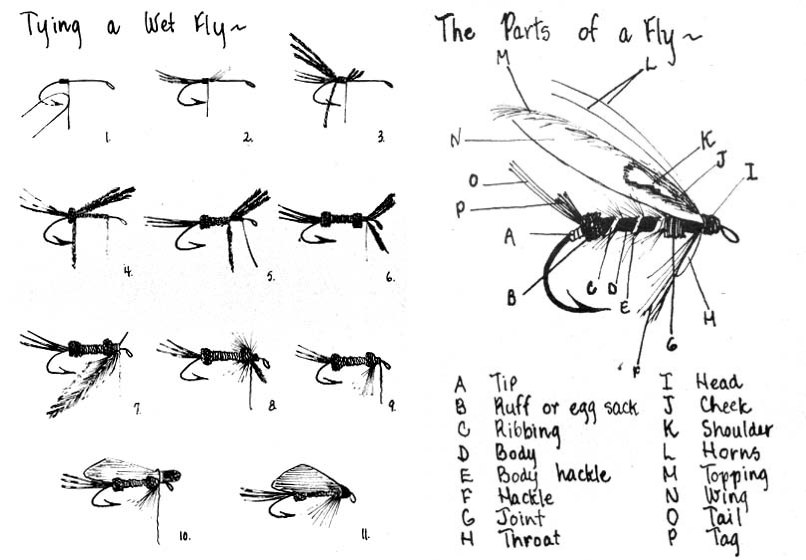 Tying a Wet Fly~
1.
2.
3.
4.
5.
6.
7.
8.
9.
10.
11.
The Parts of a Fly~
M
L
N
K
J
I
O
P
A
B
C
D
E
H
G
F
A Tip
B Ruff or egg sack
C Ribbing
D Body
E Body hackle
F Hackle
G Joint
H Throat
I Head
J Cheek
K Shoulder
L Horns
M Topping
N Wing
O Tail
P Tag